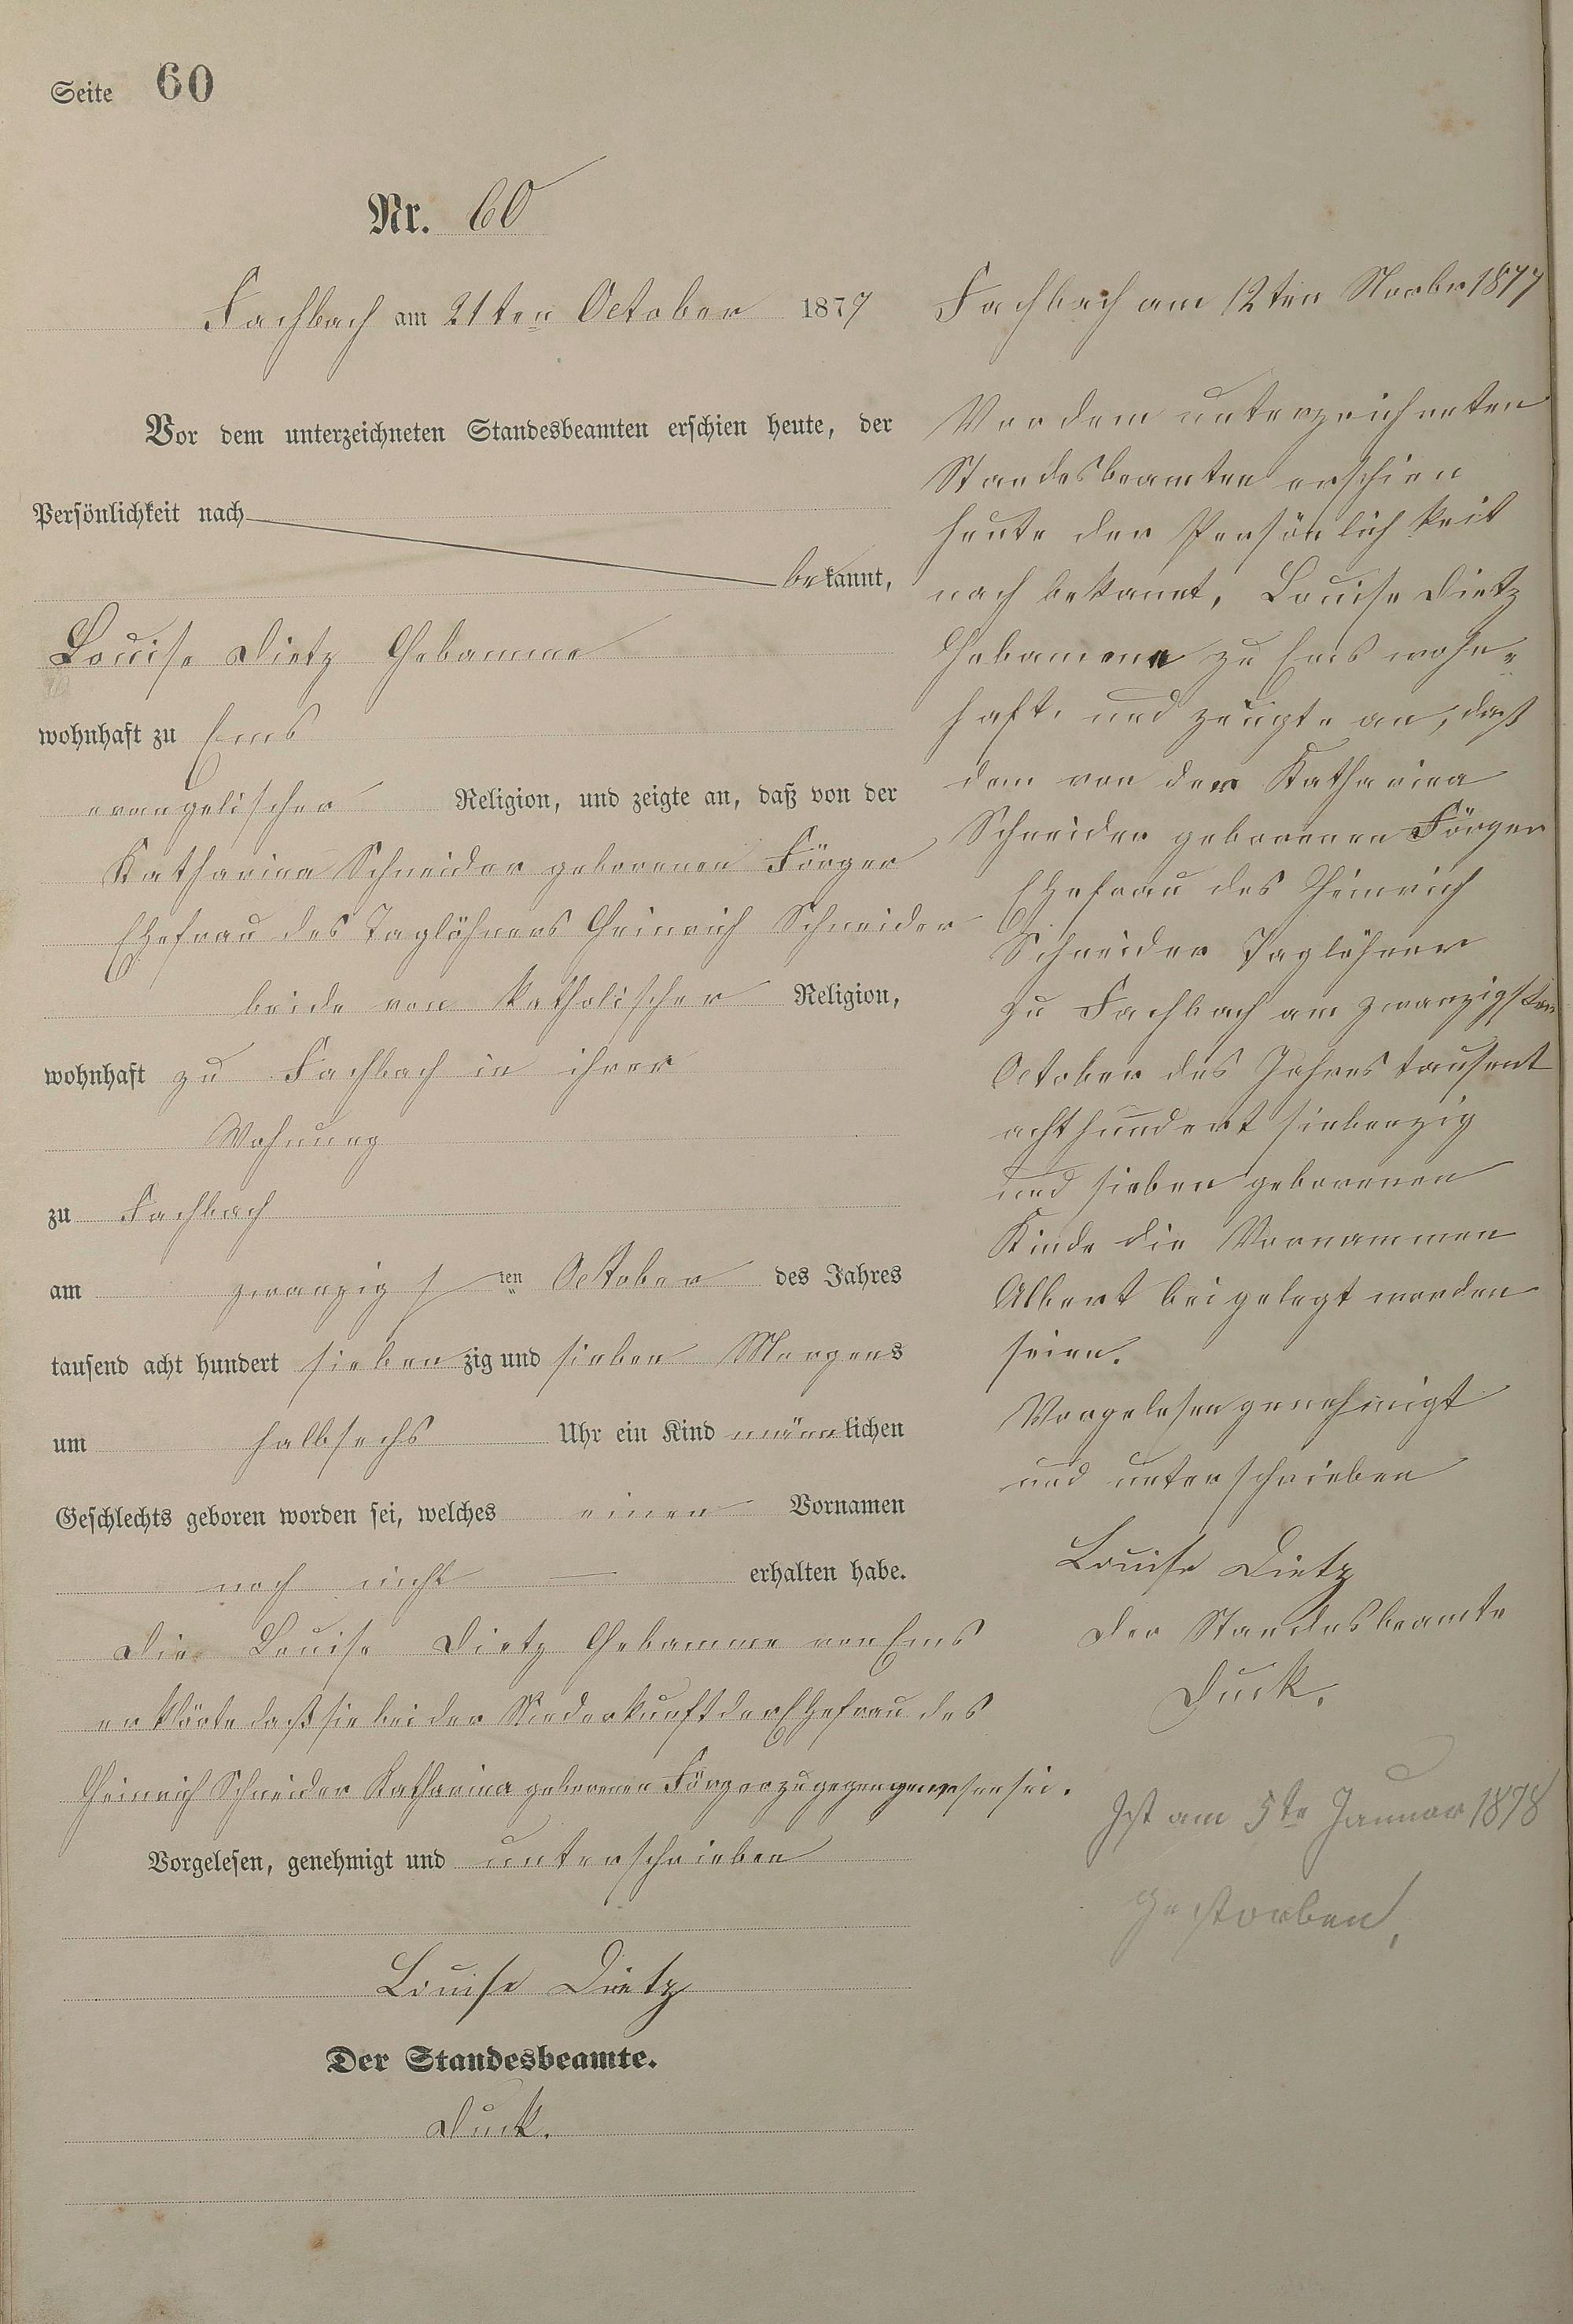 Seite 60
Nr. 60
Fachbach am 21ten October 1877
Vor dem unterzeichneten Standesbeamten erschien heute, der
Persönlichkeit nach
bekannt,
Louise Dietz Hebamme
wohnhaft zu Ems
evangelischer Religion, und zeigte an, daß von der
Katharina Schneider geborenen Förger
Ehefrau des Taglöhners Heinrich Schneider
beide von katholischer Religion,
wohnhaft zu Fachbach in ihrer
Wohnung
zu Fachbach
am zwanzigsten October des Jahres
tausend acht hundert siebenzig und sieben Morgens
um halbsechs Uhr ein Kind männlichen
Geschlechts geboren worden sei, welches einen Vornamen
noch nicht — erhalten habe.
Die Louise Dietz Hebamme von Ems
erklärte daß sie bei der Niederkunft der Ehefrau des
Heinrich Schneider Katharina geborenen Förger zugegen gewesen sei.
Vorgelesen, genehmigt und unterschrieben
Louise Dietz
Der Standesbeamte.
Duck.
Fachbach am 12ten Novbr 1877
Vor dem unterzeichneten
Standesbeamten erschien
heute der Persönlichkeit
nach bekannt, Louise Dietz
Hebamme zu Ems wohn-
haft, und zeugte an, daß
dem von der Katharina
Schneider geborenen Förger
Ehefrau des Heinrich
Schneider Taglöhner
zu Fachbach am zwanzigsten
October des Jahres tausent
acht hundert siebenzig
und sieben geborenen
Kinde die Vornammen
Albert beigelegt worden
seien.
Vorgelesen genehmigt
und unterschrieben
Louise Dietz
Der Standesbeamte
Duck.
Ist am 5te Januar 1878
gestorben,